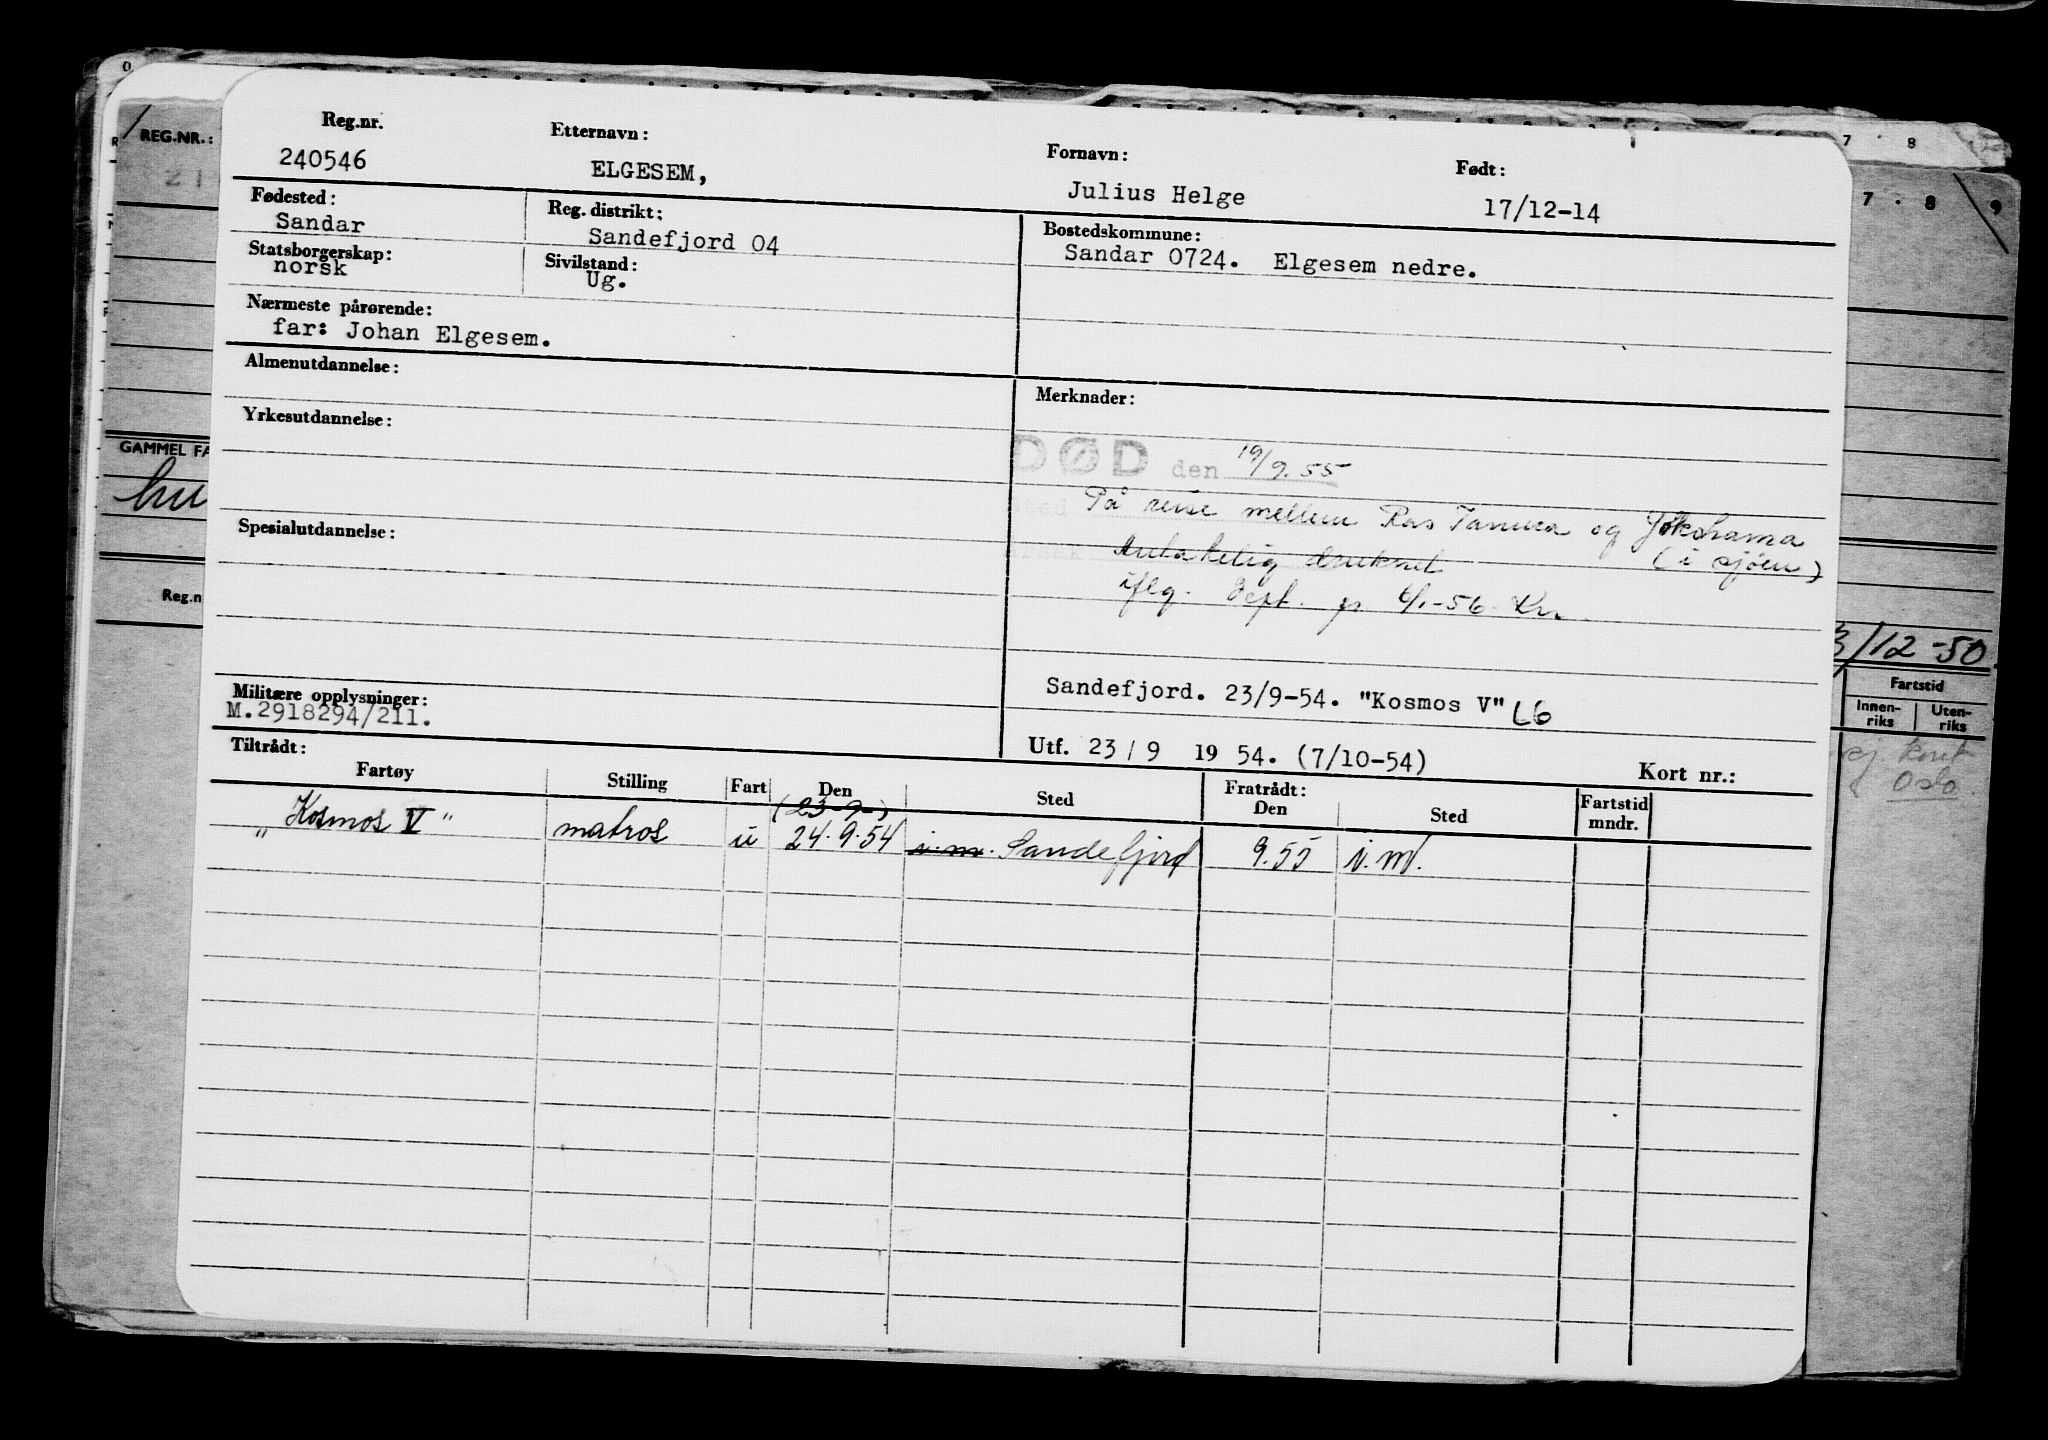 REG.NR.:
GAMMEL FA
Reg.n
7 . 8
7 . 8 9
3/12-50
Fartstid
Innen-riks Uten-riks
Oslo
Reg.nr. Etternavn: Fornavn: Født:
240546 ELGESEM, Julius Helge 17/12-14
Fødested: Reg. distrikt: Bostedskommune:
Sandar Sandefjord 04 Sandar 0724. Elgesem nedre.
Statsborgerskap: Sivilstand:
norsk Ug.
Nærmeste pårørende:
far: Johan Elgesem.
Almenutdannelse:
Yrkesutdannelse:
Spesialutdannelse:
Militære opplysninger:
M.2918294/211.
Merknader:
DØD den 19/9.55
På reise mellem Ras Tanura og Yokohama
antakelig druknet (i sjøen)
iflg. Dept. 6/1-56.
Sandefjord. 23/9-54. "Kosmos V" LG
Utf. 23/9 1954. (7/10-54) Kort nr.:
Tiltrådt: Fratrådt:
Fartøy Stilling Fart Den Sted Den Sted Fartstid mndr.
(23-9-)
„Kosmos V" matros u 24.9.54 i.m. Sandefjord 9.55 i.m.